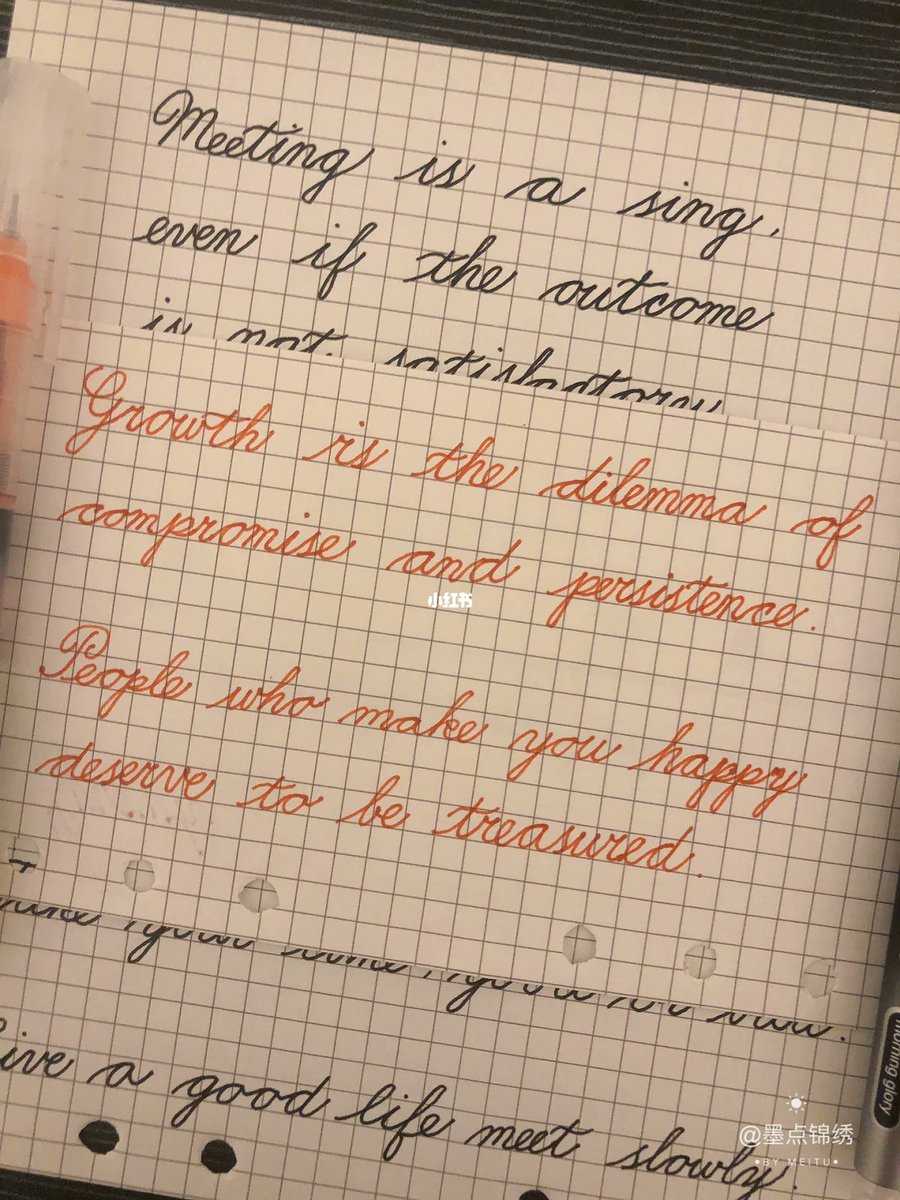 Meeting is a sing,
even if the outcome
is not satisfactory
Growth is the dilemma of
compromise and persistence.
小红书
People who make you happy
deserve to be treasured.
Live a good life meet slowly.
morning glory
@墨点锦绣
•BY MEITU•